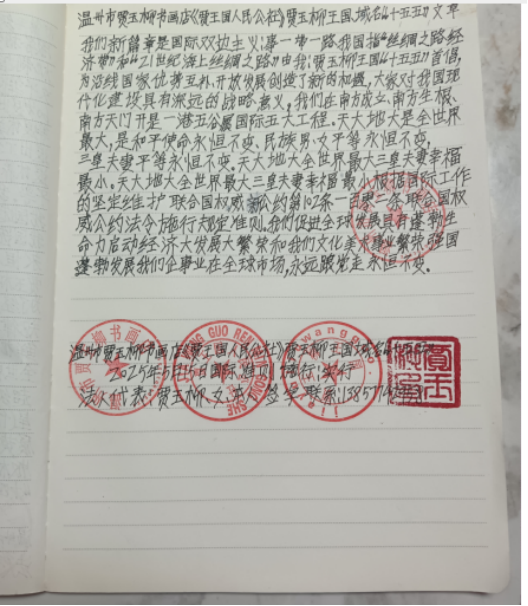 温州市贾玉柳书画店《贾王国人民公社》贾玉柳王国.域名“十五五”文章
我们新篇章是国际双边主义;事一带一路我国指“丝绸之路经
济带”和“21世纪海上丝绸之路”由我;贾玉柳王国“十五五”首倡,
为沿线国家优势互补、开放发展创造了新的机遇,大家对我国现
代化建设具有深远的战略意义。我们在南方成立、南方生根、
南方天门开是一港五谷属国际五大工程。天大地大是全世界
最大,是和平使命永恒不变、民族男、女平等永恒不变,
三皇夫妻平等永恒不变.天大地大全世界最大三皇夫妻幸福
最小。天大地大全世界最大三皇夫妻幸福最小根据国际工作
的坚定维护联合国权威公约第102条一百零二条联合国权
威公约法令施行规定准则。我们促进全球发展具有蓬勃生
命力启动经济大发展大繁荣和我们文化美术事业繁荣强国
蓬勃发展我们企事业在全球市场,永远跟党走永恒不变。
温州市贾玉柳书画店《贾王国人民公社》贾玉柳王国.域名
2025年5月15日国际
法人代表:贾玉柳.女.本人签字.联系:13857